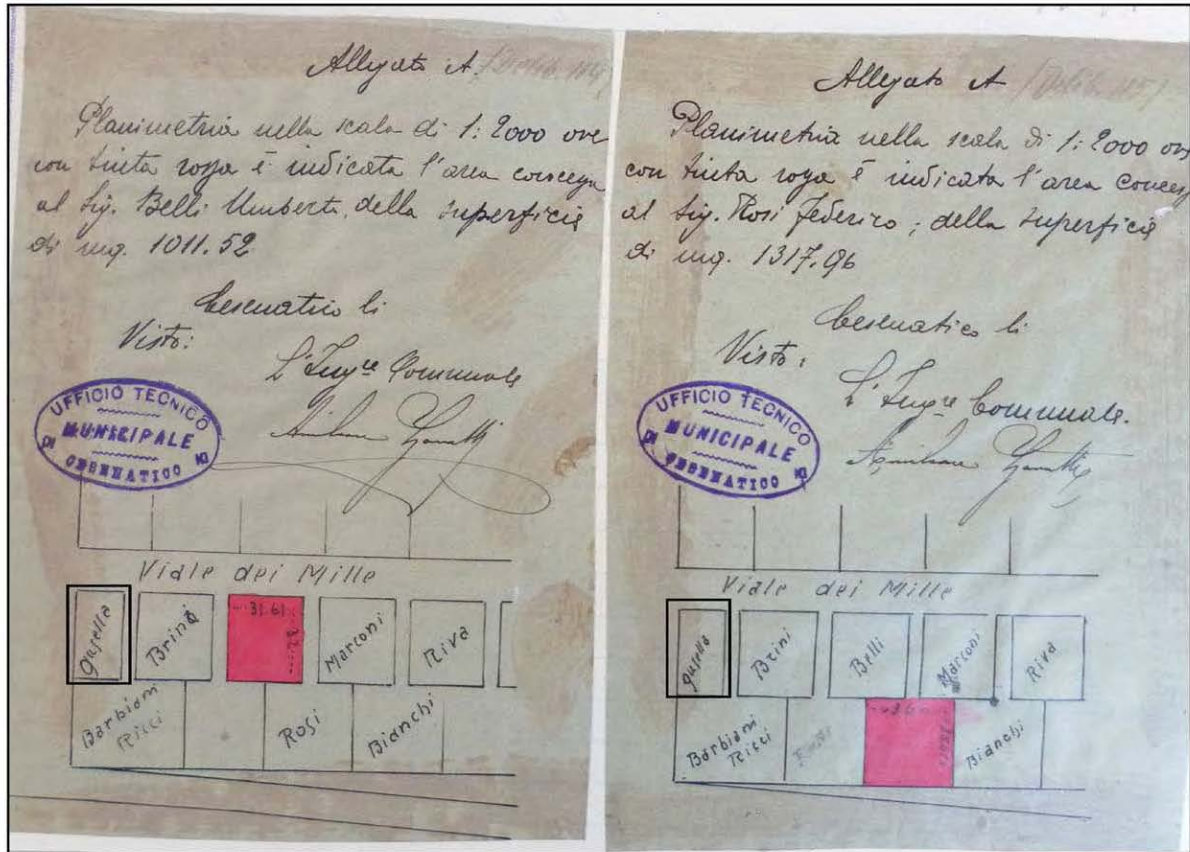 Allegato A.
Planimetria nella scala di 1:2000 ove
con tinta rossa è indicata l'area concessa
al Sig. Belli Umberto, della superficie
di mq. 1011.52
Cesenatico li
Visto:
L'Ingre Comunale
UFFICIO TECNICO
MUNICIPALE
DI CESENATICO
Viale dei Mille
Gusella
Brini
31.61
32
Marconi
Riva
Barbiani
Ricci
Rosi
Bianchi
Allegato A
Planimetria nella scala di 1:2000 ove
con tinta rossa è indicata l'area concess
al Sig. Rosi Federico, della superficie
di mq. 1317.96
Cesenatico li
Visto:
L'Ingre Comunale.
UFFICIO TECNICO
MUNICIPALE
DI CESENATICO
Viale dei Mille
Gusella
Brini
Belli
Marconi
Riva
Barbiani
Ricci
Bianchi